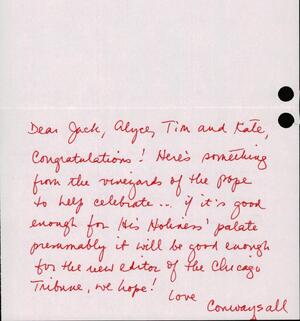 Dear Jack, Alyce, Tim and Kate,
Congratulations! Here's something
from the vineyards of the pope
to help celebrate... if it's good
enough for His Holiness' palate
presumably it will be good enough
for the new editor of the Chicago
Tribune, we hope!
Love
Conwaysall